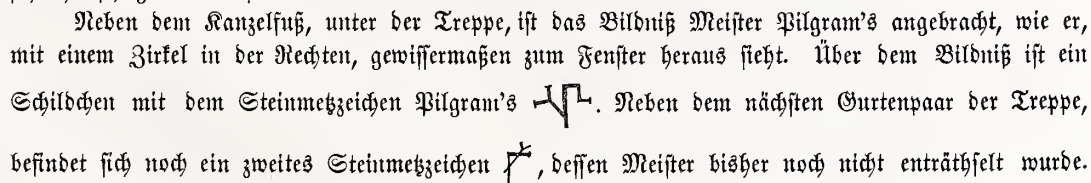 Neben dem Kanzelfuß, unter der Treppe, ist das Bildniß Meister Pilgram's angebracht, wie er,
mit einem Zirkel in der Rechten, gewissermaßen zum Fenster heraus sieht. Über dem Bildniß ist ein
Schildchen mit dem Steinmetzzeichen Pilgram's . Neben dem nächsten Gurtenpaar der Treppe,
befindet sich noch ein zweites Steinmetzzeichen , dessen Meister bisher noch nicht enträthselt wurde.